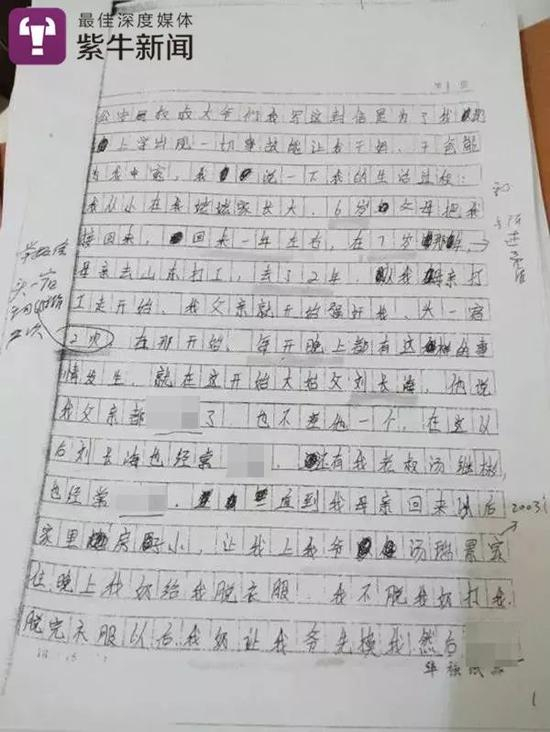 最佳深度媒体
紫牛新闻
第1页
公安局叔叔大爷们我写这封信是为了我
上学出现一切事故能让我干妈、干爸能
为我申冤，我说一下我的生活过程：
我从小在我姥姥家长大，6岁父母把我
接回来，回来一年左右，在7岁那年，
母亲去山东打工，去了2年，从我母亲打
工走开始，我父亲就开始强奸我，头一宿
2次 在那开始，每天晚上都有这样的事
情发生，就在这开始大姑父刘长海，他说
我父亲都 了，也不差他一个，在这以
后刘长海也经常 ，还有我老叔汤继彬，
也经常 ，一直到我母亲回来以后
2003
家里房子小，让我上我爷 汤瑞景家
住晚上我奶给我脱衣服，我不脱我奶打我
脱完衣服以后我奶让我爷先 我然后
头一宿
2次
1